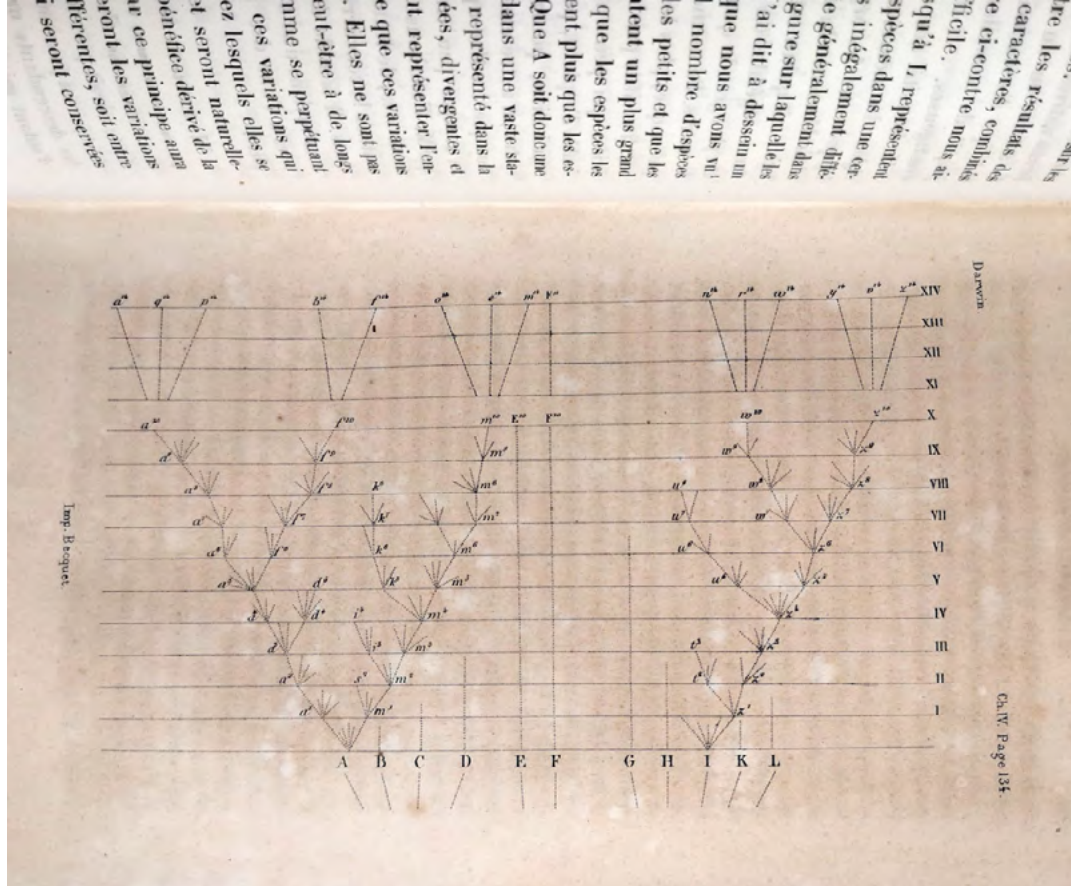 sur les
dre les résultats des
caractères, combinés
re ci-contre nous ai-
fficile.
squ'à L représentent
spèces dans une cer-
s inégalement diffé-
e généralement dans
gure sur laquelle les
'ai dit à dessein un
que nous avons vu
l nombre d'espèces
les petits et que les
atent un plus grand
que les espèces les
ent plus que les es-
Que A soit donc une
dans une vaste sta-
représenté dans la
ées, divergentes et
nt représenter l'en-
e que ces variations
. Elles ne sont pas
ent-être à de longs
mme se perpétuant
ces variations qui
ez lesquels elles se
et seront naturelle-
bénéfice dérivé de la
ar ce principe aura
eront les variations
fférentes, soit entre
i seront conservées
Darwin
a¹⁴ q¹⁴ p¹⁴ b¹⁴ f¹⁴ o¹⁴ e¹⁴ m¹⁴ F¹⁴ n¹⁴ r¹⁴ w¹⁴ y¹⁴ v¹⁴ z¹⁴ XIV
XIII
XII
XI
a¹⁰ f¹⁰ m¹⁰ E¹⁰ F¹⁰ w¹⁰ z¹⁰ X
a⁹ f⁹ m⁹ w⁹ z⁹ IX
a⁸ f⁸ k⁸ m⁸ u⁸ w⁸ z⁸ VIII
a⁷ f⁷ k⁷ m⁷ u⁷ w⁷ z⁷ VII
a⁶ f⁶ k⁶ m⁶ u⁶ z⁶ VI
a⁵ d⁵ k⁵ m⁵ u⁵ z⁵ V
d⁴ i⁴ m⁴ z⁴ IV
i³ m³ t³ z³ III
a² s² m² t² z² II
a¹ m¹ z¹ I
A B C D E F G H I K L
Imp. Becquet
Ch. IV. Page 134.